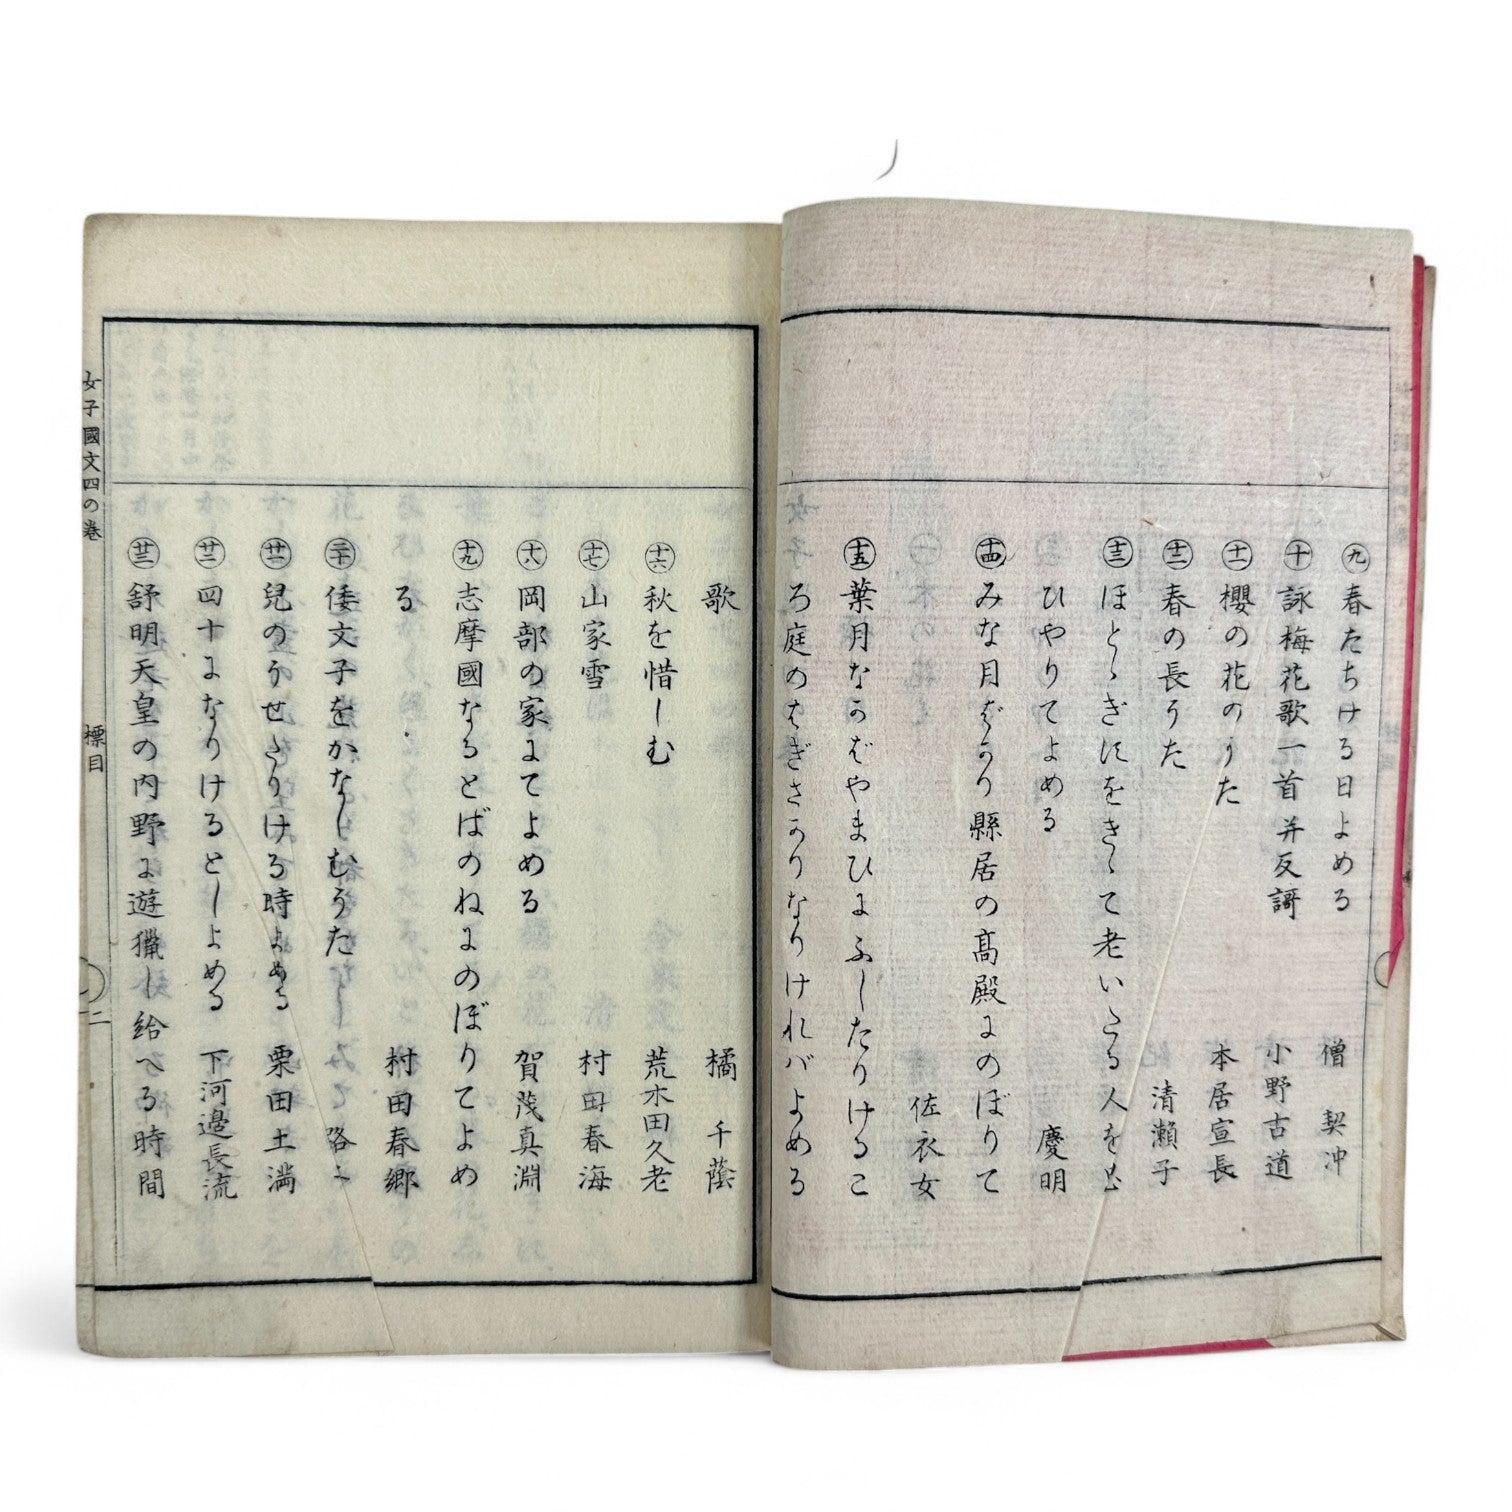 ㊈春たちける日よめる 僧 契冲
㊉詠梅花歌一首并反謌 小野古道
十一櫻の花のうた 本居宣長
十二春の長うた 清瀬子
十三ほとゝぎすをきゝて老いたる人を思
ひやりてよめる 慶明
十四みな月ばかり縣居の高殿にのぼりて
佐衣女
十五葉月なかばやまひにふしたりけるこ
ろ庭のはぎさかりなりければよめる
歌 橘 千蔭
十六秋を惜しむ 荒木田久老
十七山家雪 村田春海
十八岡部の家にてよめる 賀茂真淵
十九志摩國なるとばのねにのぼりてよめ
る 村田春郷
二十倭文子をかなしむうた
廿一兒のうせたりける時よめる 栗田土満
廿二四十になりけるとしよめる 下河邉長流
廿三舒明天皇の内野に遊獵し給へる時間
女子國文四の巻 標目 二